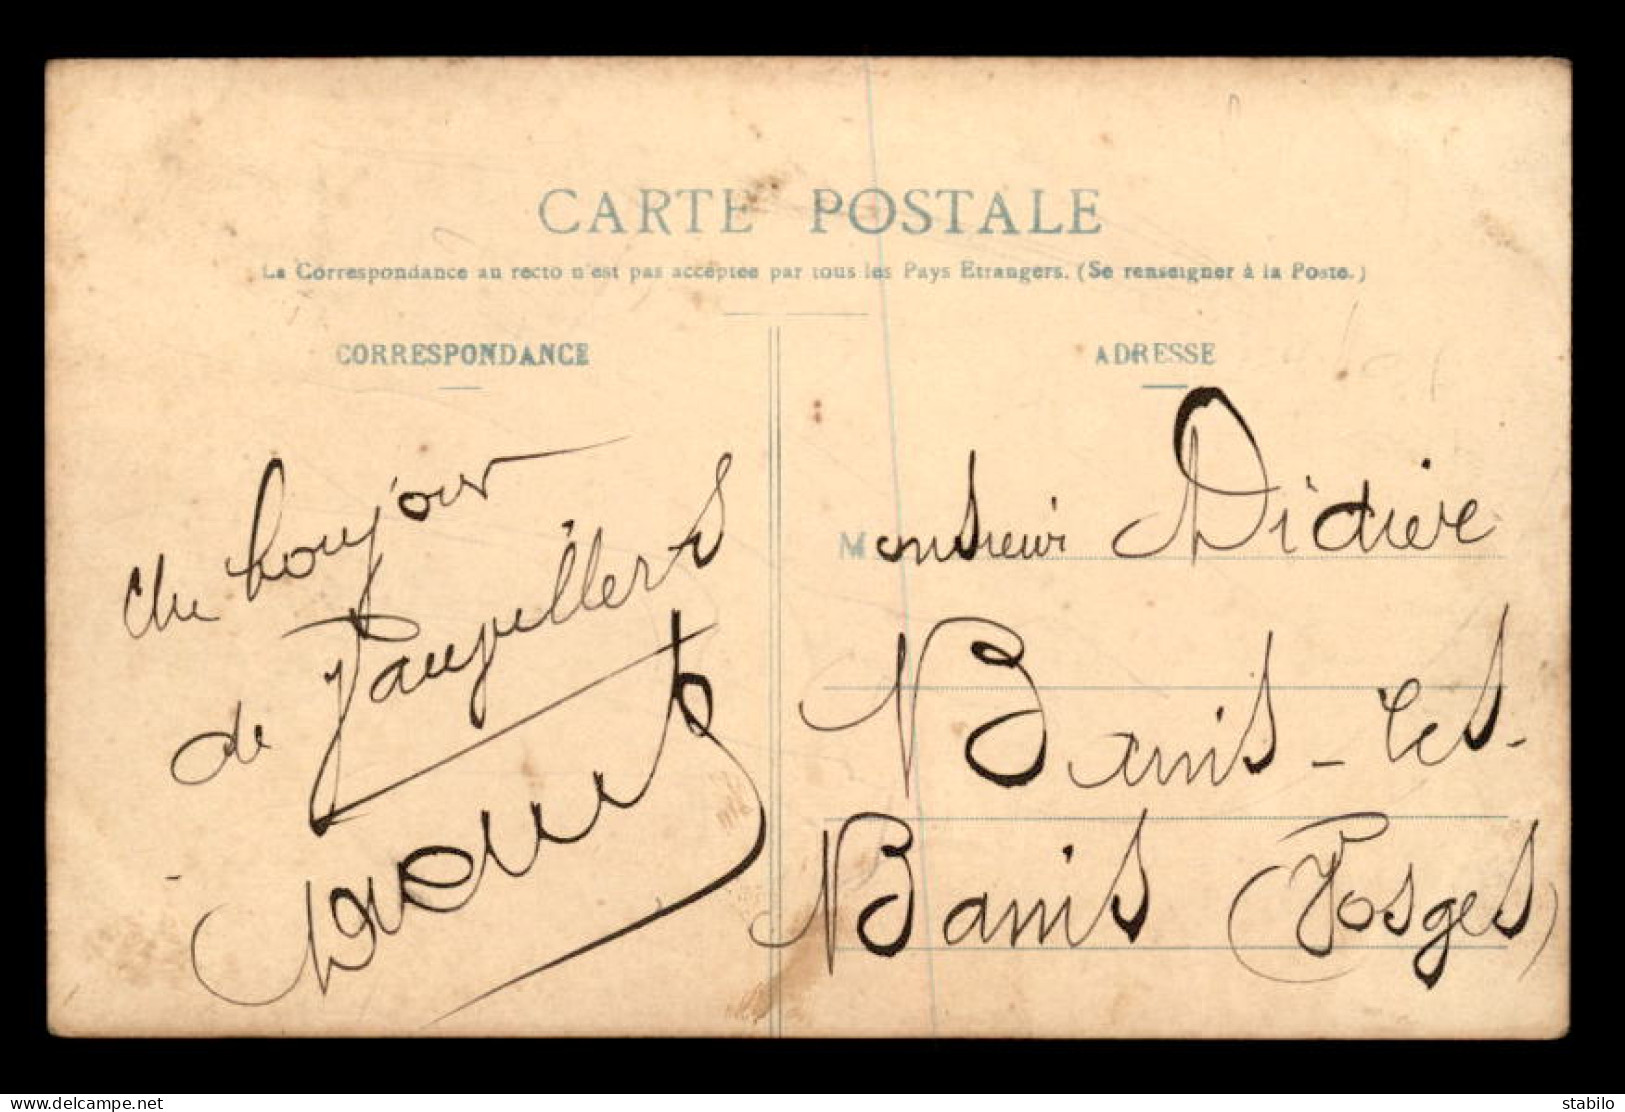 CARTE POSTALE
La Correspondance au recto n'est pas acceptée par tous les Pays Etrangers. (Se renseigner à la Poste.)
CORRESPONDANCE
Un bonjour
de Vaupillers
ADRESSE
Monsieur Didier
Bains-les-
Bains (Vosges)
www.delcampe.net
stabilo